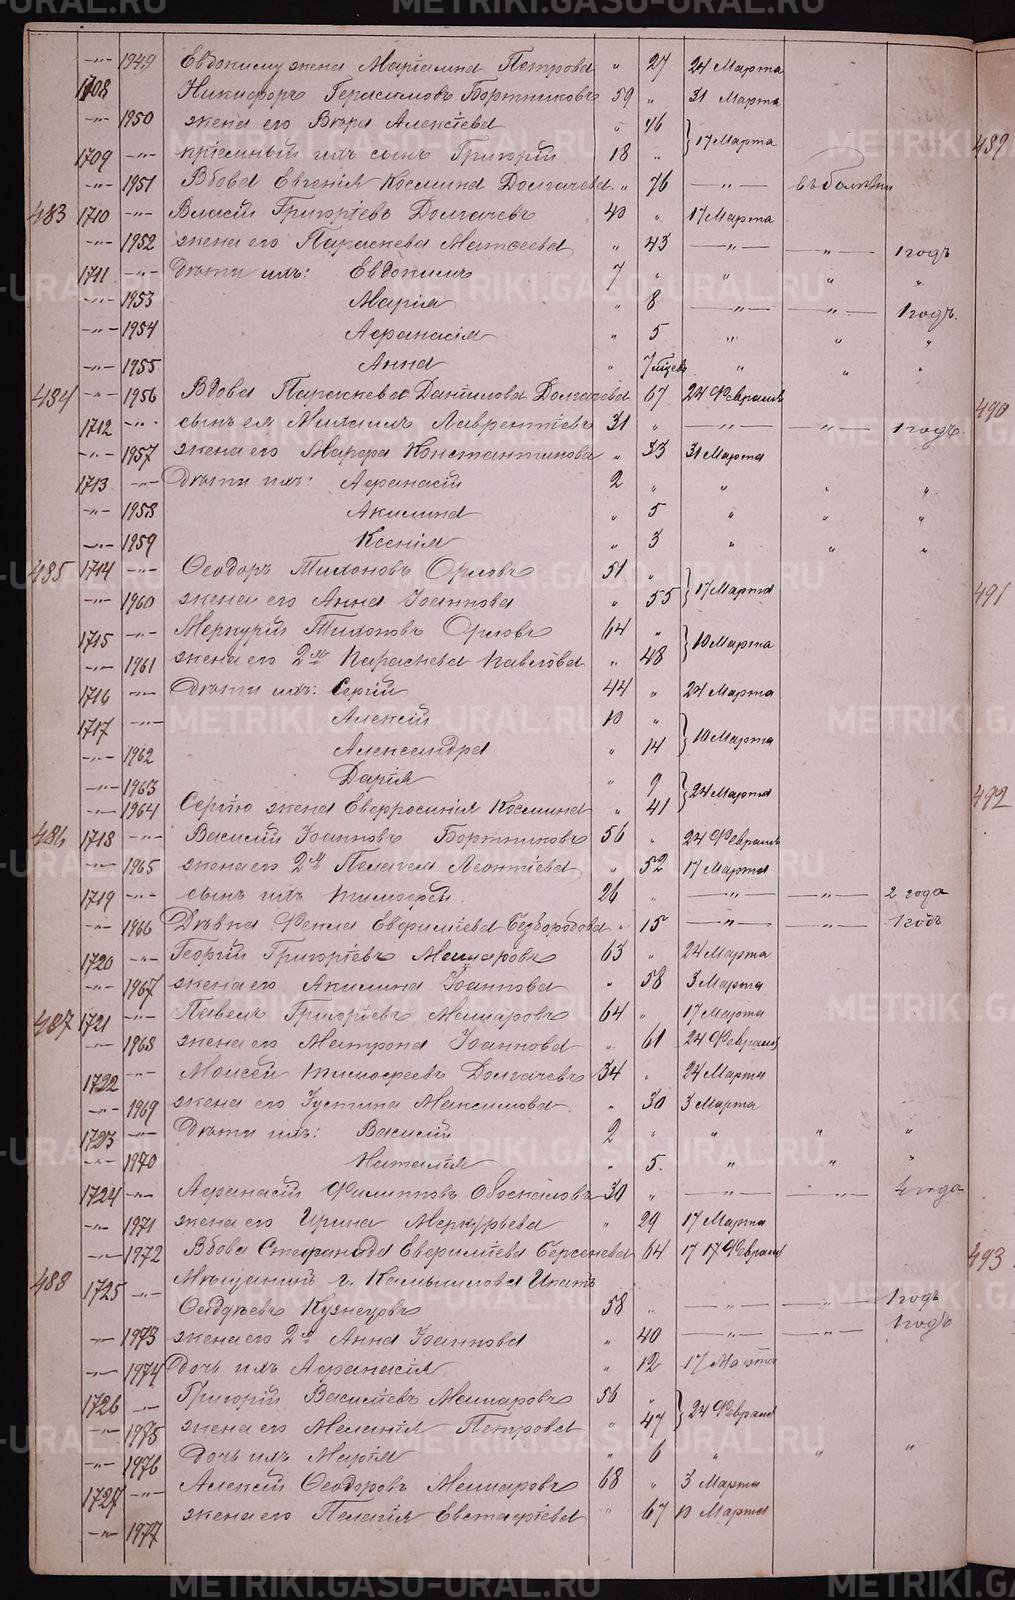 -„- 1949 Евдокиму жена Маріамна Петрова „ 27 24 Марта
1708 Никифоръ Герасимовъ Бортниковъ 59 „ 31 Марта
-„- 1950 жена его Вѣра Алексіева „ 46 } 17 Марта
1709 -„- пріемный ихъ сынъ Григорій 18 „
-„- 1951 Вдова Евгенія Космина Долгачева „ 76 -„- въ болѣзни
483 1710 -„- Власій Григоріевъ Долгачевъ 40 „ 17 Марта
-„- 1952 жена его Параскева Матѳеева „ 43 -„- -„- 1 годъ
1711 -„- Дѣти ихъ: Евдокимъ 7 „ „ „ „
-„- 1953 Марія „ 8 -„- -„- 1 годъ.
-„- 1954 Аѳанасія „ 5 „ „ „
-„- 1955 Анна „ 7 мѣсев „ „ „
484 -„- 1956 Вдова Параскева Данилова Долгачева 67 24 Февраля
1712 -„- сынъ ея Михаилъ Лаврентіевъ 31 „ -„- -„- 1 годъ.
-„- 1957 жена его Марѳа Константинова „ 33 31 Марта
1713 -„- Дѣти ихъ: Аѳанасій 2 „ „ „ „
-„- 1958 Акилина „ 5 „ „ „
-„- 1959 Ксенія „ 3 „ „ „
485 1714 -„- Ѳеодоръ Тихоновъ Орловъ 51 „ } 17 Марта
-„- 1960 жена его Анна Іоаннова „ 55
1715 -„- Меркурій Тихоновъ Орловъ 64 „ } 10 Марта
-„- 1961 жена его 2мъ Параскева Павлова „ 48
1716 -„- Дѣти ихъ: Сергій 44 „ 24 Марта
1717 -„- Алексій 10 „ } 10 Марта
-„- 1962 Александра „ 14
-„- 1963 Дарія „ 9 } 24 Марта
-„- 1964 Сергію жена Евфросинія Космина „ 41
486 1718 -„- Василій Іоанновъ Бортниковъ 56 „ 24 Февраля
-„- 1965 жена его 2мъ Пелагея Леонтіева „ 52 17 Марта
1719 -„- сынъ ихъ Тимоѳей. 26 „ -„- -„- 2 года
-„- 1966 Дѣвка Ѳекла Безбородова „ 15 -„- -„- 1 годъ
1720 -„- Георгій Григоріевъ 63 „ 24 Марта
-„- 1967 жена его Акилина Іоаннова „ 58 3 Марта
487 1721 -„- Павелъ Григоріевъ 64 „ 17 Марта
-„- 1968 жена его Матрона Іоаннова „ 61 24 Февраля
1722 -„- Моисей Тимоѳеевъ Долгачевъ 34 „ 24 Марта
-„- 1969 жена его Іустина Максимова „ 30 3 Марта
1723 -„- Дѣти ихъ: Василій 2 „ „ „ „
-„- 1970 Наталія „ 5. „ „ „
1724 -„- Аѳанасій Филипповъ 30 „ -„- -„- 4 года
-„- 1971 жена его Ирина Меркурьева „ 29 17 Марта
-„- 1972 Вдова Стефанида Берсенева 64 17 17 Феврал
488 1725 -„- Мѣщанинъ г. Камышлова
Кузнецовъ 58 „ -„- -„- 1 годъ
-„- 1973 жена его 2я Анна Іоаннова „ 40 -„- -„- 1 годъ
-„- 1974 дочь ихъ Аѳанасія „ 12 17 Марта
1726 -„- Григорій Василіевъ 56 „ } 24 Феврал
-„- 1975 жена его Меланія Петрова „ 47
-„- 1976 Дочь ихъ Марія „ 6 „ „ „
1727 -„- Алексій Ѳеодоровъ 68 „ 3 Марта
-„- 1977 жена его Пелагія Евстафіева „ 67 10 Марта
489
490
491
492
493
METRIKI.GASO-URAL.RU